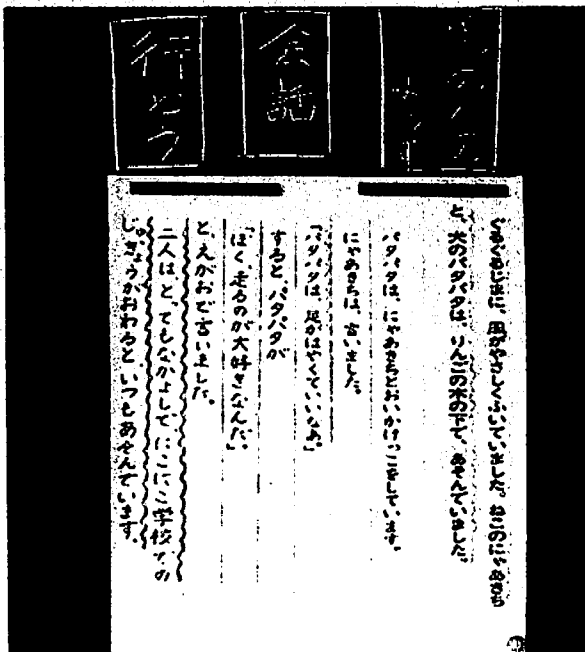 会話
行どう
風がやさしくふいていました。ねこのにゃあきち
と、犬のパタパタは、りんごの木の下で、あそんでいました。
パタパタは、にゃあきちとおいかけっこをしています。
にゃあきちは、言いました。
「パタパタは、足がはやくていいなあ」
すると、パタパタが
「ぼく、走るのが大好きなんだ。」
と、えがおで言いました。
二人はとってもなかよしで、にこにこ学校の
じゅぎょうがおわると、いつもあそんでいます。